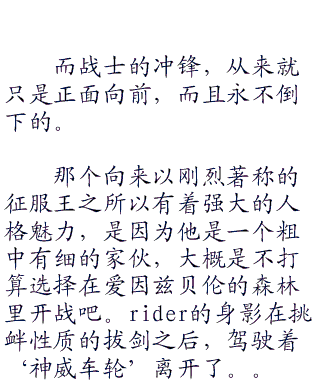 而战士的冲锋，从来就
只是正面向前，而且永不倒
下的。
那个向来以刚烈著称的
征服王之所以有着强大的人
格魅力，是因为他是一个粗
中有细的家伙，大概是不打
算选择在爱因兹贝伦的森林
里开战吧。rider的身影在挑
衅性质的拔剑之后，驾驶着
‘神威车轮’离开了。。